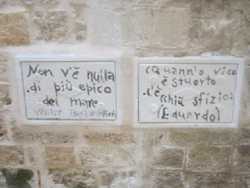 Non v'è nulla
di più epico
del mare
Quann'o vico
è stuorto
l'è
sfizio
(Eduardo)